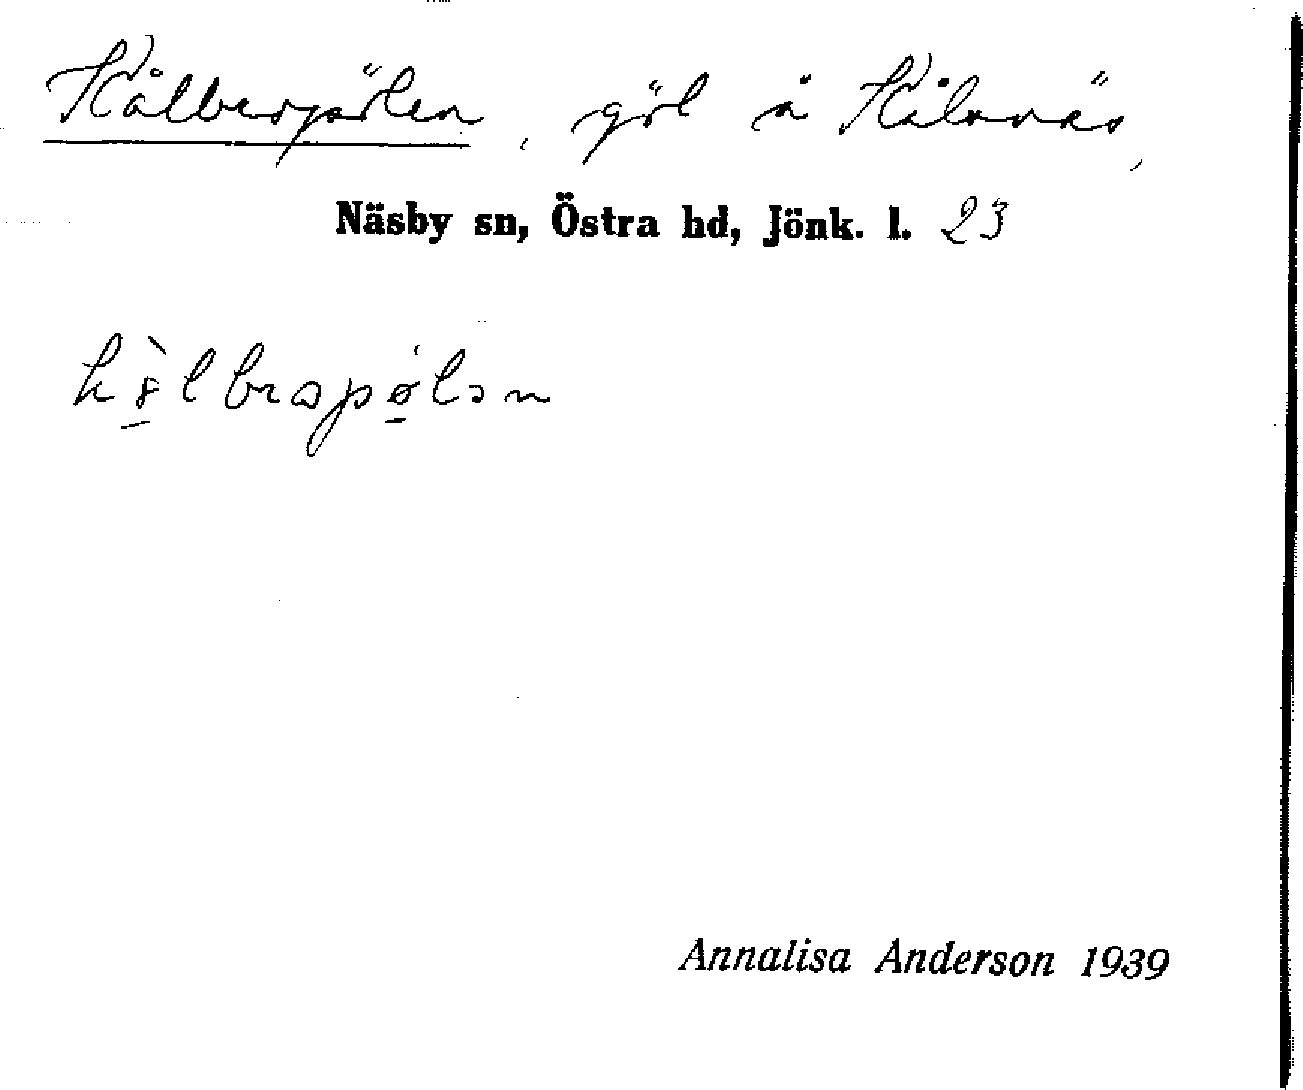 Kålberpölen, göl å Kålsnäs,
Näsby sn, Östra hd, Jönk. l. 23
Annalisa Anderson 1939